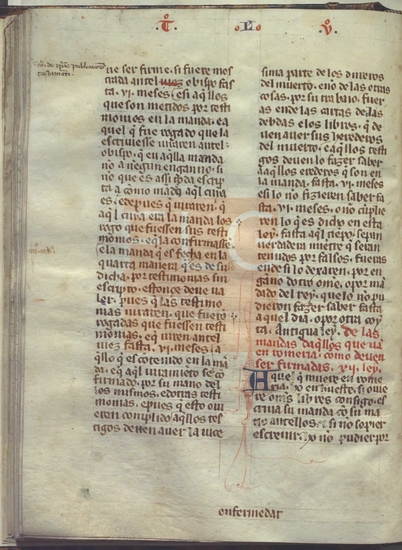 T · L · V
der ser firme. si fuere mos
trada antel iuez obispo fas
ta .vi. meses. e si aq̃llos
que son metidos por testi
monios en la manda. e a
quel q̃ fue rogado que la
escriuiesse iuraren antel
obispo. q̃ en aq̃lla manda
no a negun enganno. si
no que es assi toda escrip
ta como mado aq̃l cuia
es. e depues q̃ iuraren. q̃
aq̃l cuia era la manda los
rogo que fuessen ṽs testi
monios. e q̃ la confirmasse.
E la manda q̃ es fecha en la
quarta manera q̃ es de su
dicha. por testimonias sin
escripto. estonce deue ua
ler. pues q̃ las testimo
nias iuraren. que fueron
rogadas que fuessen testi
monias. e q̃ iuren antel
iuez fasta .vi. meses. la
q̃llo q̃ es cotenido en la mã
da. e aq̃l iuramieto sea co
firmado. por su mano del
los mismos. e dotras testi
monias. e pues q̃ esto oui
eren complido aq̃llos tes
tigos deuen auer la uice
sima parte de los dineros
del muerto. e no de las otras
cosas. por su trabaio. fuer
as ende las cartas de las
debdas e los libros. q̃ de
uen auer sus herederos
del muerto. e aq̃llos testi
gos deuen lo fazer saber
a aq̃llos erederos q̃ son en
la manda. fasta .vi. meses
e si no lo fizieren saber fa
sta .vi. meses. o no cũplie
ren lo que es dicho en esta
ley. fasta aq̃l tiepo. sean
uerdadera miẽtre q̃ seran
tenudos por falsos. fueras
ende si lo dexaren. por en
gano dotro ome. o por mã
dado del rey. que lo no pu
dieron fazer saber fasta
a quel dia. o por otra coy
ta. Antigua ley. De las
mandas daq̃llos que uã
en romeria. como deuen
ser firmadas. xvii. ley.
Aquel q̃ muere en rome
ria. o en hueste. si oui
ere om̃s libres consigo. es
criua su manda co su ma
no antellos. e si no sopier
escreuir. o no pudier por
enfermedat